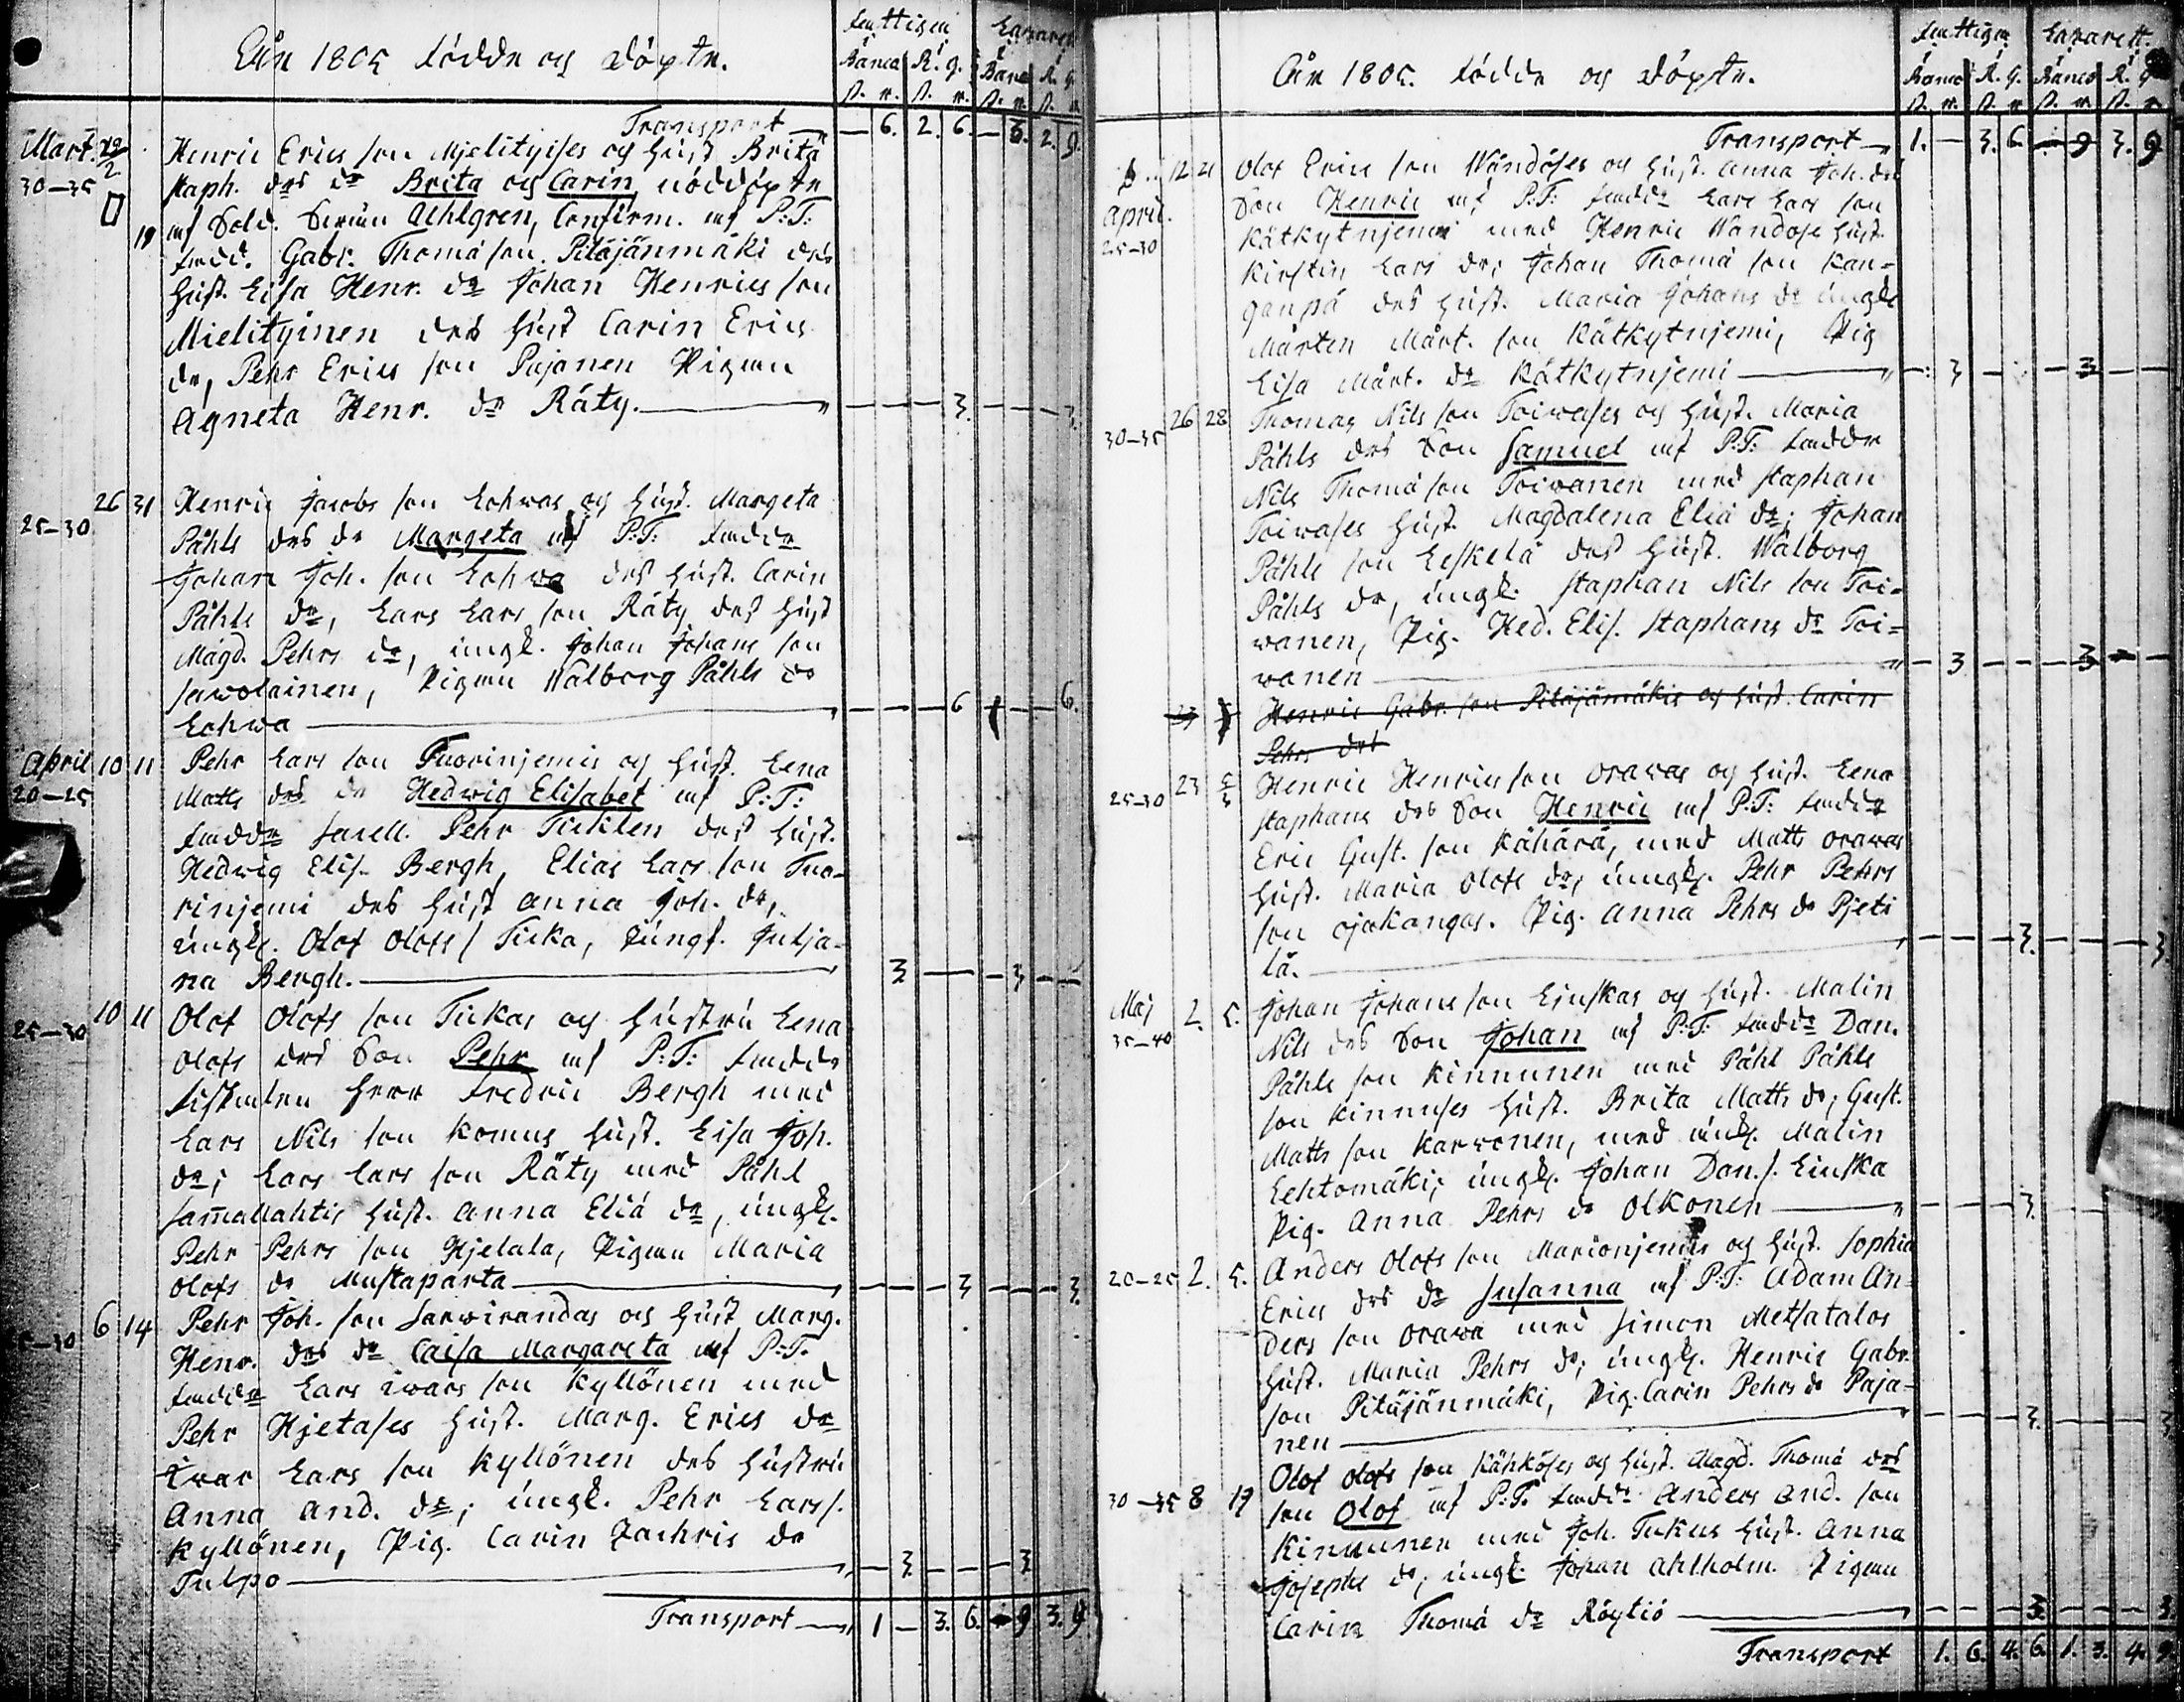 Åhr 1805 födde og döpte.
fattigen Lazaret
Banco R. g. Banco R. g.
s. r. s. r. s. r. s. r.
Transport — 6. 2. 6. — 6. 2. 9.
Mart. Henric Erics son Mjelityises og hust. Brita
30—35 staph. dr dr Brita og Carin nöddöpte
af Sold. Ahlgren, Confirm. af P:T:
19 fadd. Gabr. Thomæ son Pitäjänmäki des
hust. Lisa Henr. dr Johan Henrics son
Mielityinen des hust Carin Erics
dr, Pehr Erics son Pajanen Pigan
Agneta Henr. dr Räty. — 3. — 3.
26 31 Henric Jacobs son Lohwas og hust. Margeta
25—30 Påhls drs dr Margeta af P:T: faddr
Johan Joh. son Lohwa des hust. Carin
Påhls dr, Lars Lars son Räty des hust
Magd. Pehrs dr, ungk. Johan Johans son
Sawolainen, Pigan Walborg Påhls dr
Lohwa — 6 — 6.
April 10 11 Pehr Lars son Tuorinjemis og hust. Lena
20—25 Matts drs dr Hedwig Elisabet af P:T:
faddr Pehr des hust.
Hedwig Elis. Bergh, Elias Lars son Tuo-
rinjemi des hust Anna Joh. dr,
ungk. Olof Olofs s. Ticka, Jungf. Julja-
na Bergh. — 3 — 3 —
10 11 Olof Olofs son Tickas og hustru Lena
25—30 Olofs drs son Pehr af P:T: faddr
Herr Fredric Bergh med
Lars Nils son Komus hust. Lisa Joh.
dr; Lars Lars son Räty med Påhl
Sam̄allahtis hust. Anna Eliæ dr, ungk.
Pehr Pehrs son Hjetala, Pigan Maria
Olofs dr Mustaparta — 3 — 3.
6 14 Pehr Joh. son Sarwirandas og hust Marg.
Henr. drs dr Caisa Margareta af P:T.
faddr Lars Iwars son Kyllönen med
Pehr Hjetases hust. Marg. Erics dr
Iwar Lars son Kyllönen des hustru
Anna And. dr; ungk. Pehr Lars s.
Kyllönen, Pig. Carin Zachris dr
Tulpo — 3 — 3
Transport 1 — 3. 6. — 9 3. 9
Åhr 1805. födde og döpte.
fattigen Lazarett.
Banco R. g. Banco R. g
s. r. s. r s. r s. r
Transport 1. — 3. 6 — 9 3. 9
12 21 Olof Erics son Wändöses og hust. Anna Joh. drs
April. Son Henric af P:T: faddr Lars Lars son
25—30 Kätkytnjemi med Henric Wändöse hust.
Kirstin Lars dr; Johan Thomæ son Kan-
ganpä des hust. Maria Johans dr ungk
Mårten Mårt. son Kätkytnjemi, Pig
Lisa Mårt. dr Kätkytnjemi — 3 — 3 —
26 28 Thomas Nils son Toiwases og hust. Maria
30—35 Påhls drs Son Samuel af P:T: faddr
Nils Thomæ son Toiwanen med Staphan
Toiwases hust. Magdalena Eliæ dr; Johan
Påhls son Leskelä des hust. Walborg
Påhls dr, ungk. Staphan Nils son Toi-
wanen, Pig. Hed. Elis. Staphans dr Toi-
wanen — 3 — 3 —
Henric Gabr. son Pitäjämäkis og hust. Carin
Pehrs drs
25—30 23 Henric Henrics son Orawas og hust. Lena
Staphans drs Son Henric af P:T: faddr
Eric Gust. son Kähärä, med Matts Orawas
hust. Maria Olofs dr; ungk. Pehr Pehrs
son Ojakangas. Pig. Anna Pehrs dr Pjeti
lä. — 3. — 3
Maj 2. 5. Johan Johans son Liuskas og hust. Malin
35—40 Nils drs Son Johan af P:T: faddr Dan.
Påhls son Kinnunen med Påhl Påhls
son Kinnuses hust. Brita Matts dr; Gust.
Matts son Karwonen, med Malin
Lehtomäki; ungk. Johan Dan. s. Liuska
Pig. Anna Pehrs dr Olkonen — 3.
20—25 2. 5. Anders Olofs son Marionjemis og hust. Sophia
Erics drs dr Susanna af P:T: Adam An-
ders son Orawa med Simon Metsatalos
hust. Maria Pehrs dr; ungk. Henric Gabr.
son Pitäjänmäki, Pig. Carin Pehrs dr Paja-
nen — 3. — 3
Olof Olofs son Kähköses og hust. Magd. Thomæ drs
30—35 8 19 son Olof af P:T. faddr Anders And. son
Kinnunen med Joh. Tukus hust. Anna
Josephs dr; ungk. Johan Ahlholm. Pigan
Carin Thomæ dr Röytiö — 3. — 3.
Transport 1. 6. 4. 6. 1. 3. 4. 9